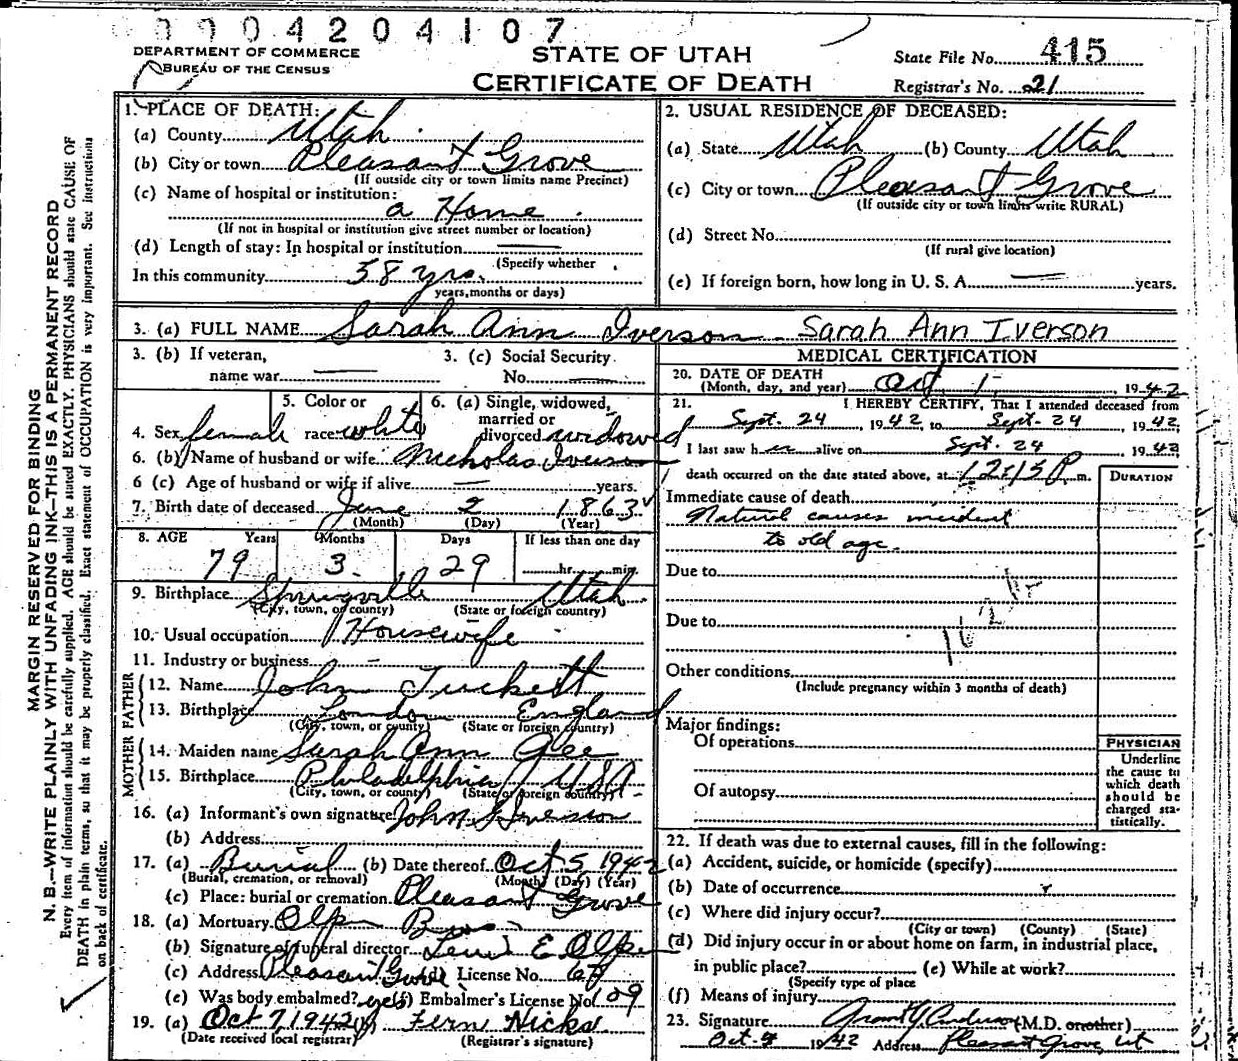 0904204107
DEPARTMENT OF COMMERCE
BUREAU OF THE CENSUS
STATE OF UTAH
CERTIFICATE OF DEATH
State File No. 415
Registrar's No. 21
MARGIN RESERVED FOR BINDING
N. B.—WRITE PLAINLY WITH UNFADING INK—THIS IS A PERMANENT RECORD
Every item of information should be carefully supplied. AGE should be stated EXACTLY. PHYSICIANS should state CAUSE OF
DEATH in plain terms, so that it may be properly classified. Exact statement of OCCUPATION is very important. See instructions
on back of certificate.
1. PLACE OF DEATH:
(a) County Utah
(b) City or town Pleasant Grove
(If outside city or town limits name Precinct)
(c) Name of hospital or institution:
a Home
(If not in hospital or institution give street number or location)
(d) Length of stay: In hospital or institution
(Specify whether
In this community 58 yrs.
years, months or days)
2. USUAL RESIDENCE OF DECEASED:
(a) State Utah (b) County Utah
(c) City or town Pleasant Grove
(If outside city or town limits write RURAL)
(d) Street No.
(If rural give location)
(e) If foreign born, how long in U. S. A. years.
3. (a) FULL NAME Sarah Ann Iverson Sarah Ann Iverson
3. (b) If veteran,
name war
3. (c) Social Security
No.
4. Sex female
5. Color or
race white
6. (a) Single, widowed,
married or
divorced widowed
6. (b) Name of husband or wife Nicholas Iverson
6 (c) Age of husband or wife if alive years.
7. Birth date of deceased June 2 1863
(Month) (Day) (Year)
8. AGE Years Months Days If less than one day
79 3 29 hr. min.
9. Birthplace Springville Utah
(City, town, or county) (State or foreign country)
10. Usual occupation Housewife
11. Industry or business
FATHER
12. Name John Tuckett
13. Birthplace London England
(City, town, or county) (State or foreign country)
MOTHER
14. Maiden name Sarah Ann Gee
15. Birthplace Philadelphia USA
(City, town, or county) (State or foreign country)
16. (a) Informant's own signature John Iverson
(b) Address
17. (a) Burial (b) Date thereof Oct 5 1942
(Burial, cremation, or removal) (Month) (Day) (Year)
(c) Place: burial or cremation Pleasant Grove
18. (a) Mortuary Olpin Bros
(b) Signature of funeral director E Olpin
(c) Address Pleasant Grove (d) License No. 67
(e) Was body embalmed? yes (f) Embalmer's License No. 109
19. (a) Oct 7 1942 (b) Fern Nicks
(Date received local registrar) (Registrar's signature)
MEDICAL CERTIFICATION
20. DATE OF DEATH
(Month, day, and year) Oct 1 1942
21. I HEREBY CERTIFY, That I attended deceased from
Sept. 24, 1942, to Sept. 24 1942;
I last saw her alive on Sept. 24 1942
death occurred on the date stated above, at 12:15 P. m.
DURATION
Immediate cause of death
Natural causes incident
to old age.
Due to
Due to
162
Other conditions
(Include pregnancy within 3 months of death)
Major findings:
Of operations
Of autopsy
PHYSICIAN
Underline
the cause to
which death
should be
charged sta-
tistically.
22. If death was due to external causes, fill in the following:
(a) Accident, suicide, or homicide (specify)
(b) Date of occurrence
(c) Where did injury occur?
(City or town) (County) (State)
(d) Did injury occur in or about home on farm, in industrial place,
in public place? (e) While at work?
(Specify type of place
(f) Means of injury
23. Signature Grant Y. Anderson (M.D. or other)
Oct. 9 1942 Address Pleasant Grove Ut